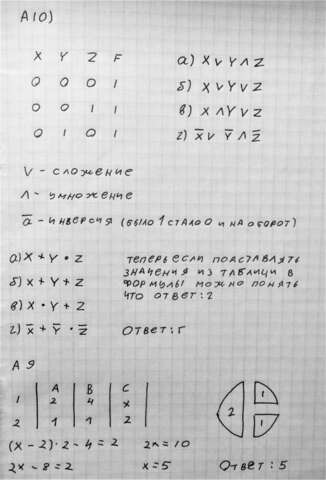 А10)
X Y Z F
0 0 0 1
0 0 1 1
0 1 0 1
а) X ∨ Y ∧ Z
б) X ∨ Y ∨ Z
в) X ∧ Y ∨ Z
г) X̅ ∨ Y̅ ∧ Z̅
∨ - сложение
∧ - умножение
a̅ - инверсия (было 1 стало 0 и на оборот)
а) X + Y • Z
б) X + Y + Z
в) X • Y + Z
г) X̅ + Y̅ • Z̅
теперь если подставлять
значения из таблици в
формулы можно понять
что ответ: г
Ответ: Г
А 9
A B C
1 2 4 x
2 1 1 2
2 1 1
(x - 2) • 2 - 4 = 2
2x - 8 = 2
2x = 10
x = 5
Ответ: 5